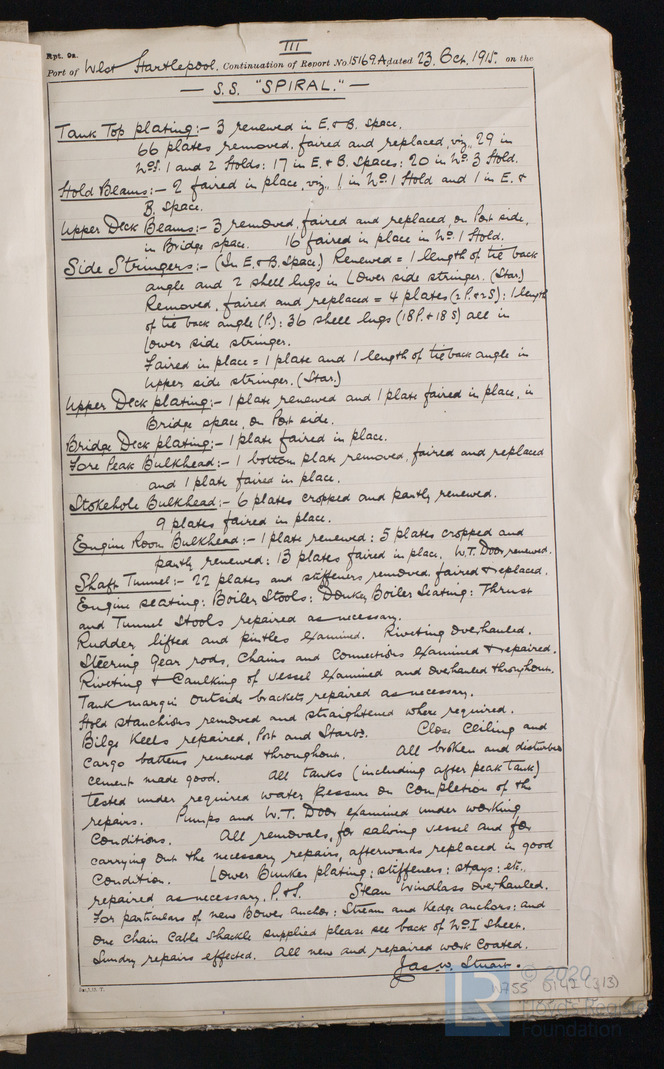 III
Rpt. 9a.
Port of West Hartlepool. Continuation of Report No. 15169A dated 23. Oct. 1915. on the
— S.S. "SPIRAL." —
Tank Top plating:- 3 renewed in E. & B. Space.
66 plates removed, faired and replaced, viz., 29 in
Nos. 1 and 2 Holds: 17 in E. & B. Spaces: 20 in No. 3 Hold.
Hold Beams:- 2 faired in place, viz., 1 in No. 1 Hold and 1 in E. &
B. Space.
Upper Deck Beams:- 3 removed, faired and replaced, on Port side,
in Bridge space. 16 faired in place in No. 1 Hold.
Side Stringers:- (In E. & B. Space.) Renewed = 1 length of tie back
angle and 2 shell lugs in Lower side stringer. (Star.)
Removed, faired and replaced = 4 plates (2 P. & 2 S): 1 length
of tie back angle (P.): 36 shell lugs (18 P. & 18 S) all in
Lower side stringer.
Faired in place = 1 plate and 1 length of tie back angle in
upper side stringer. (Star.)
Upper Deck plating:- 1 plate renewed and 1 plate faired in place, in
Bridge space, on Port side.
Bridge Deck plating:- 1 plate faired in place.
Fore Peak Bulkhead:- 1 bottom plate removed, faired and replaced
and 1 plate faired in place.
Stokehole Bulkhead:- 6 plates cropped and partly renewed.
9 plates faired in place.
Engine Room Bulkhead:- 1 plate renewed: 5 plates cropped and
partly renewed: 13 plates faired in place. W.T. Door renewed.
Shaft Tunnel:- 22 plates and stiffeners removed, faired & replaced.
Engine seating: Boiler Stools: Donkey Boiler Seating: Thrust
and Tunnel Stools repaired as necessary.
Rudder lifted and pintles examined. Riveting overhauled.
Steering Gear rods, Chains and Connections examined & repaired.
Riveting & Caulking of vessel examined and overhauled throughout.
Tank margin outside brackets repaired as necessary.
Hold stanchions removed and straightened where required.
Bilge Keels repaired, Port and Starbd. Close Ceiling and
Cargo battens renewed throughout. All broken and disturbed
cement made good. All tanks (including after peak tank)
tested under required water pressure on completion of the
repairs. Pumps and W.T. Door examined under working
Conditions. All removals, for salving vessel and for
carrying out the necessary repairs, afterwards replaced in good
Condition. Lower Bunker plating: stiffeners: stays: etc.,
repaired as necessary. P. & S. Steam Windlass overhauled.
For particulars of new Bower anchor: Stream and Kedge anchors: and
one Chain Cable Shackle supplied please see back of No. I Sheet.
Sundry repairs effected. All new and repaired work Coated.
Jas. W. Stuart.
© 2020
LR
Foundation